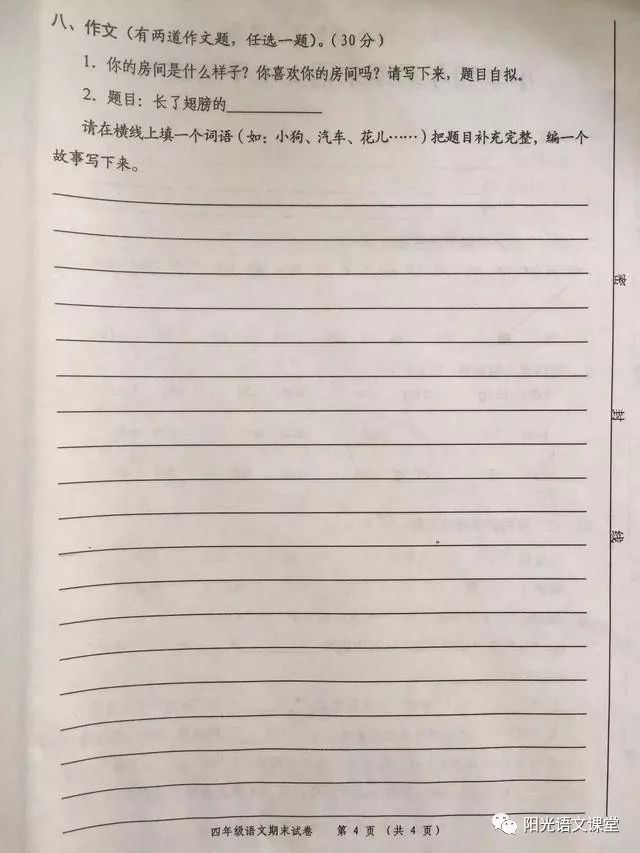 八、作文（有两道作文题，任选一题）。（30分）
1．你的房间是什么样子？你喜欢你的房间吗？请写下来，题目自拟。
2．题目：长了翅膀的____________
请在横线上填一个词语（如：小狗、汽车、花儿……）把题目补充完整，编一个
故事写下来。
密
封
线
四年级语文期末试卷 第 4 页 （共 4 页）
阳光语文课堂